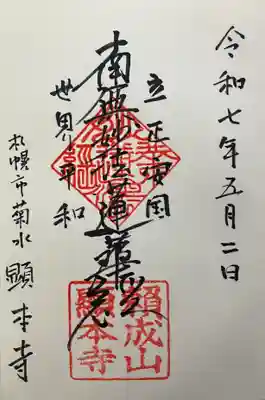 令和七年五月二日
立正安国
南無妙法蓮華経
世界平和
札幌市菊水 顯本寺
顯成山
顯本寺